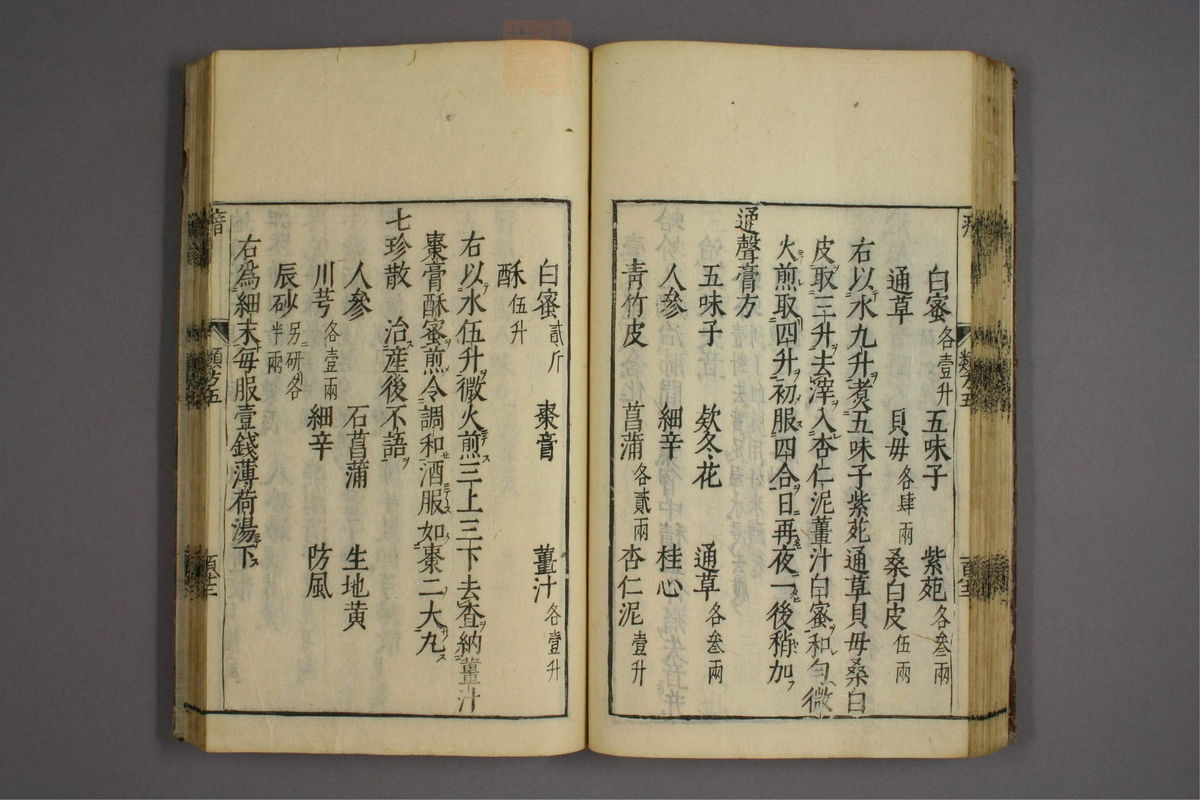 白蜜各壹升 五味子 紫苑各叄兩
通草 貝母各肆兩 桑白皮伍兩
右以水九升煮五味子紫苑通草貝母桑白
皮取三升去滓入杏仁泥薑汁白蜜和勻微
火煎取四升初服四合日再夜一後稍加
通聲膏方
五味子 欵冬花 通草各叄兩
人參 細辛 桂心
青竹皮 菖蒲各貳兩 杏仁泥壹升
白蜜貳斤 棗膏 薑汁各壹升
酥伍升
右以水伍升微火煎三上三下去查納薑汁
棗膏酥蜜煎令調和酒服如棗二大丸
七珍散 治產後不語
人參 石菖蒲 生地黃
川芎各壹兩 細辛 防風
辰砂另研各半兩
右為細末每服壹錢薄荷湯下
瘖 類方五